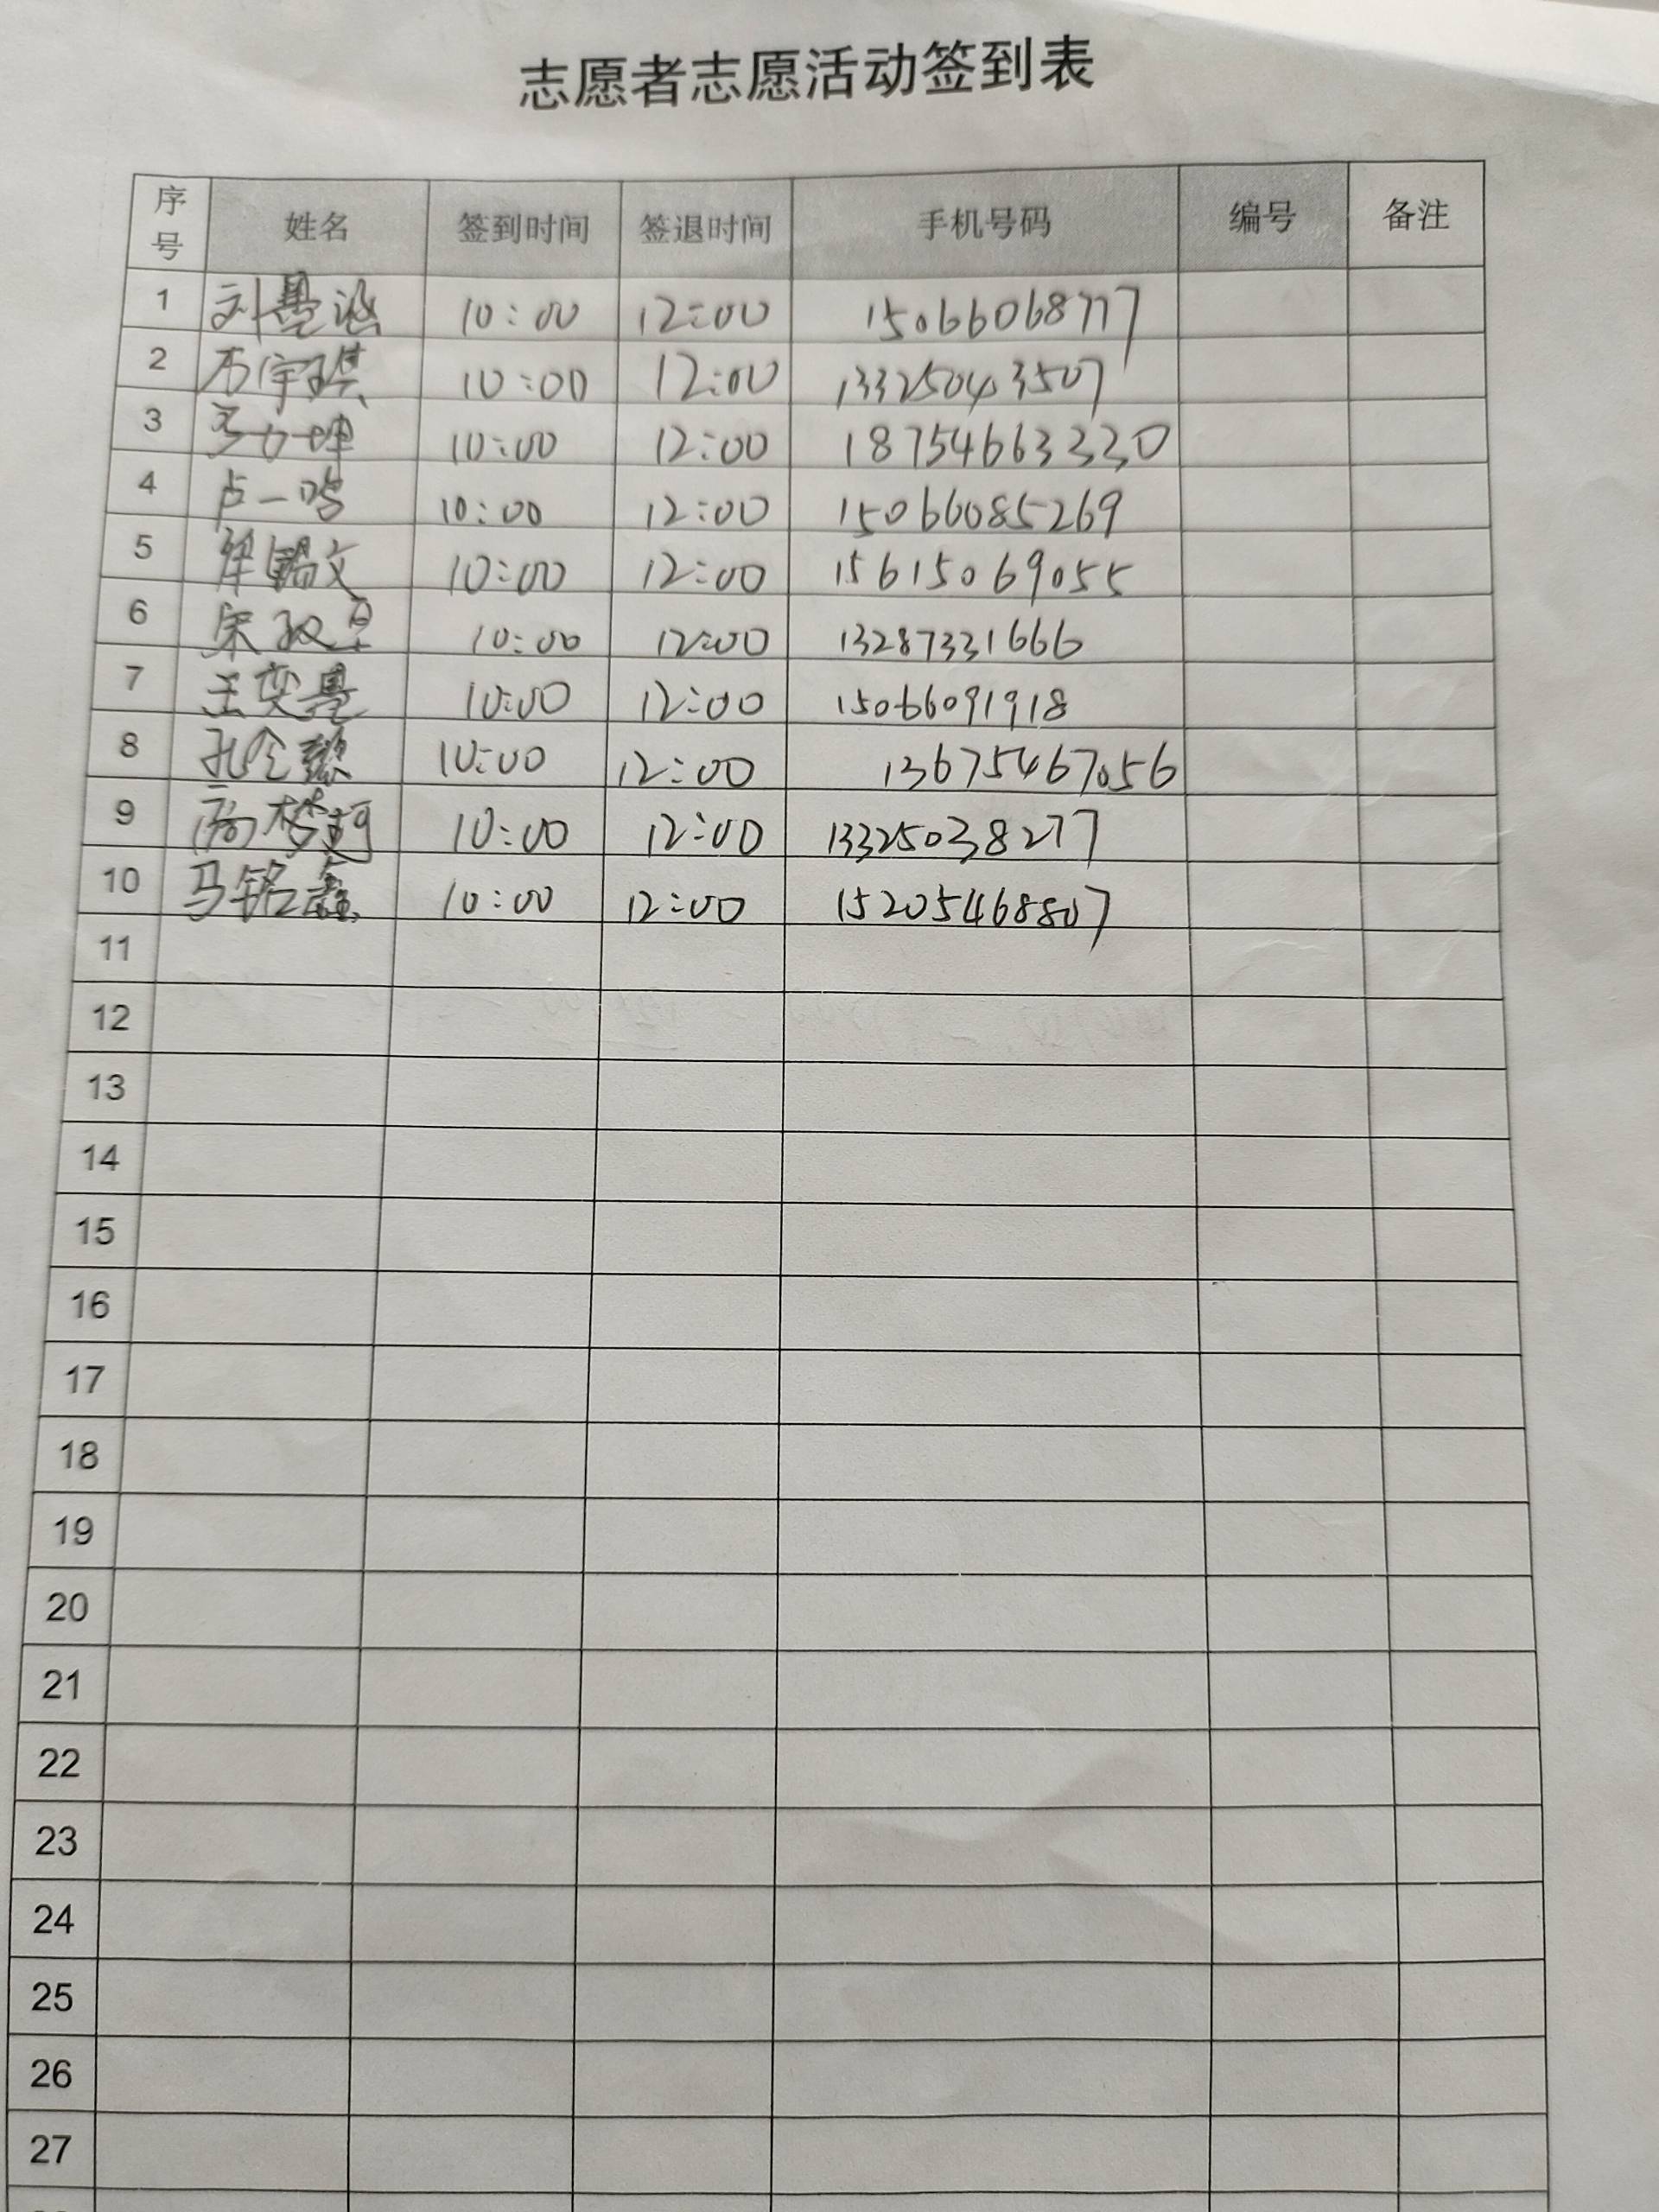 志愿者志愿活动签到表
序号 姓名 签到时间 签退时间 手机号码 编号 备注
1 刘墨涵 10:00 12:00 15066068777
2 10:00 12:00 13325043507
3 10:00 12:00 18754663330
4 卢一鸣 10:00 12:00 15066085269
5 文 10:00 12:00 15615069055
6 宋 10:00 12:00 13287331666
7 王奕墨 10:00 12:00 15066091918
8 孔令懿 10:00 12:00 13675467056
9 高梦珂 10:00 12:00 13325038277
10 马铭鑫 10:00 12:00 15205468807
11
12
13
14
15
16
17
18
19
20
21
22
23
24
25
26
27